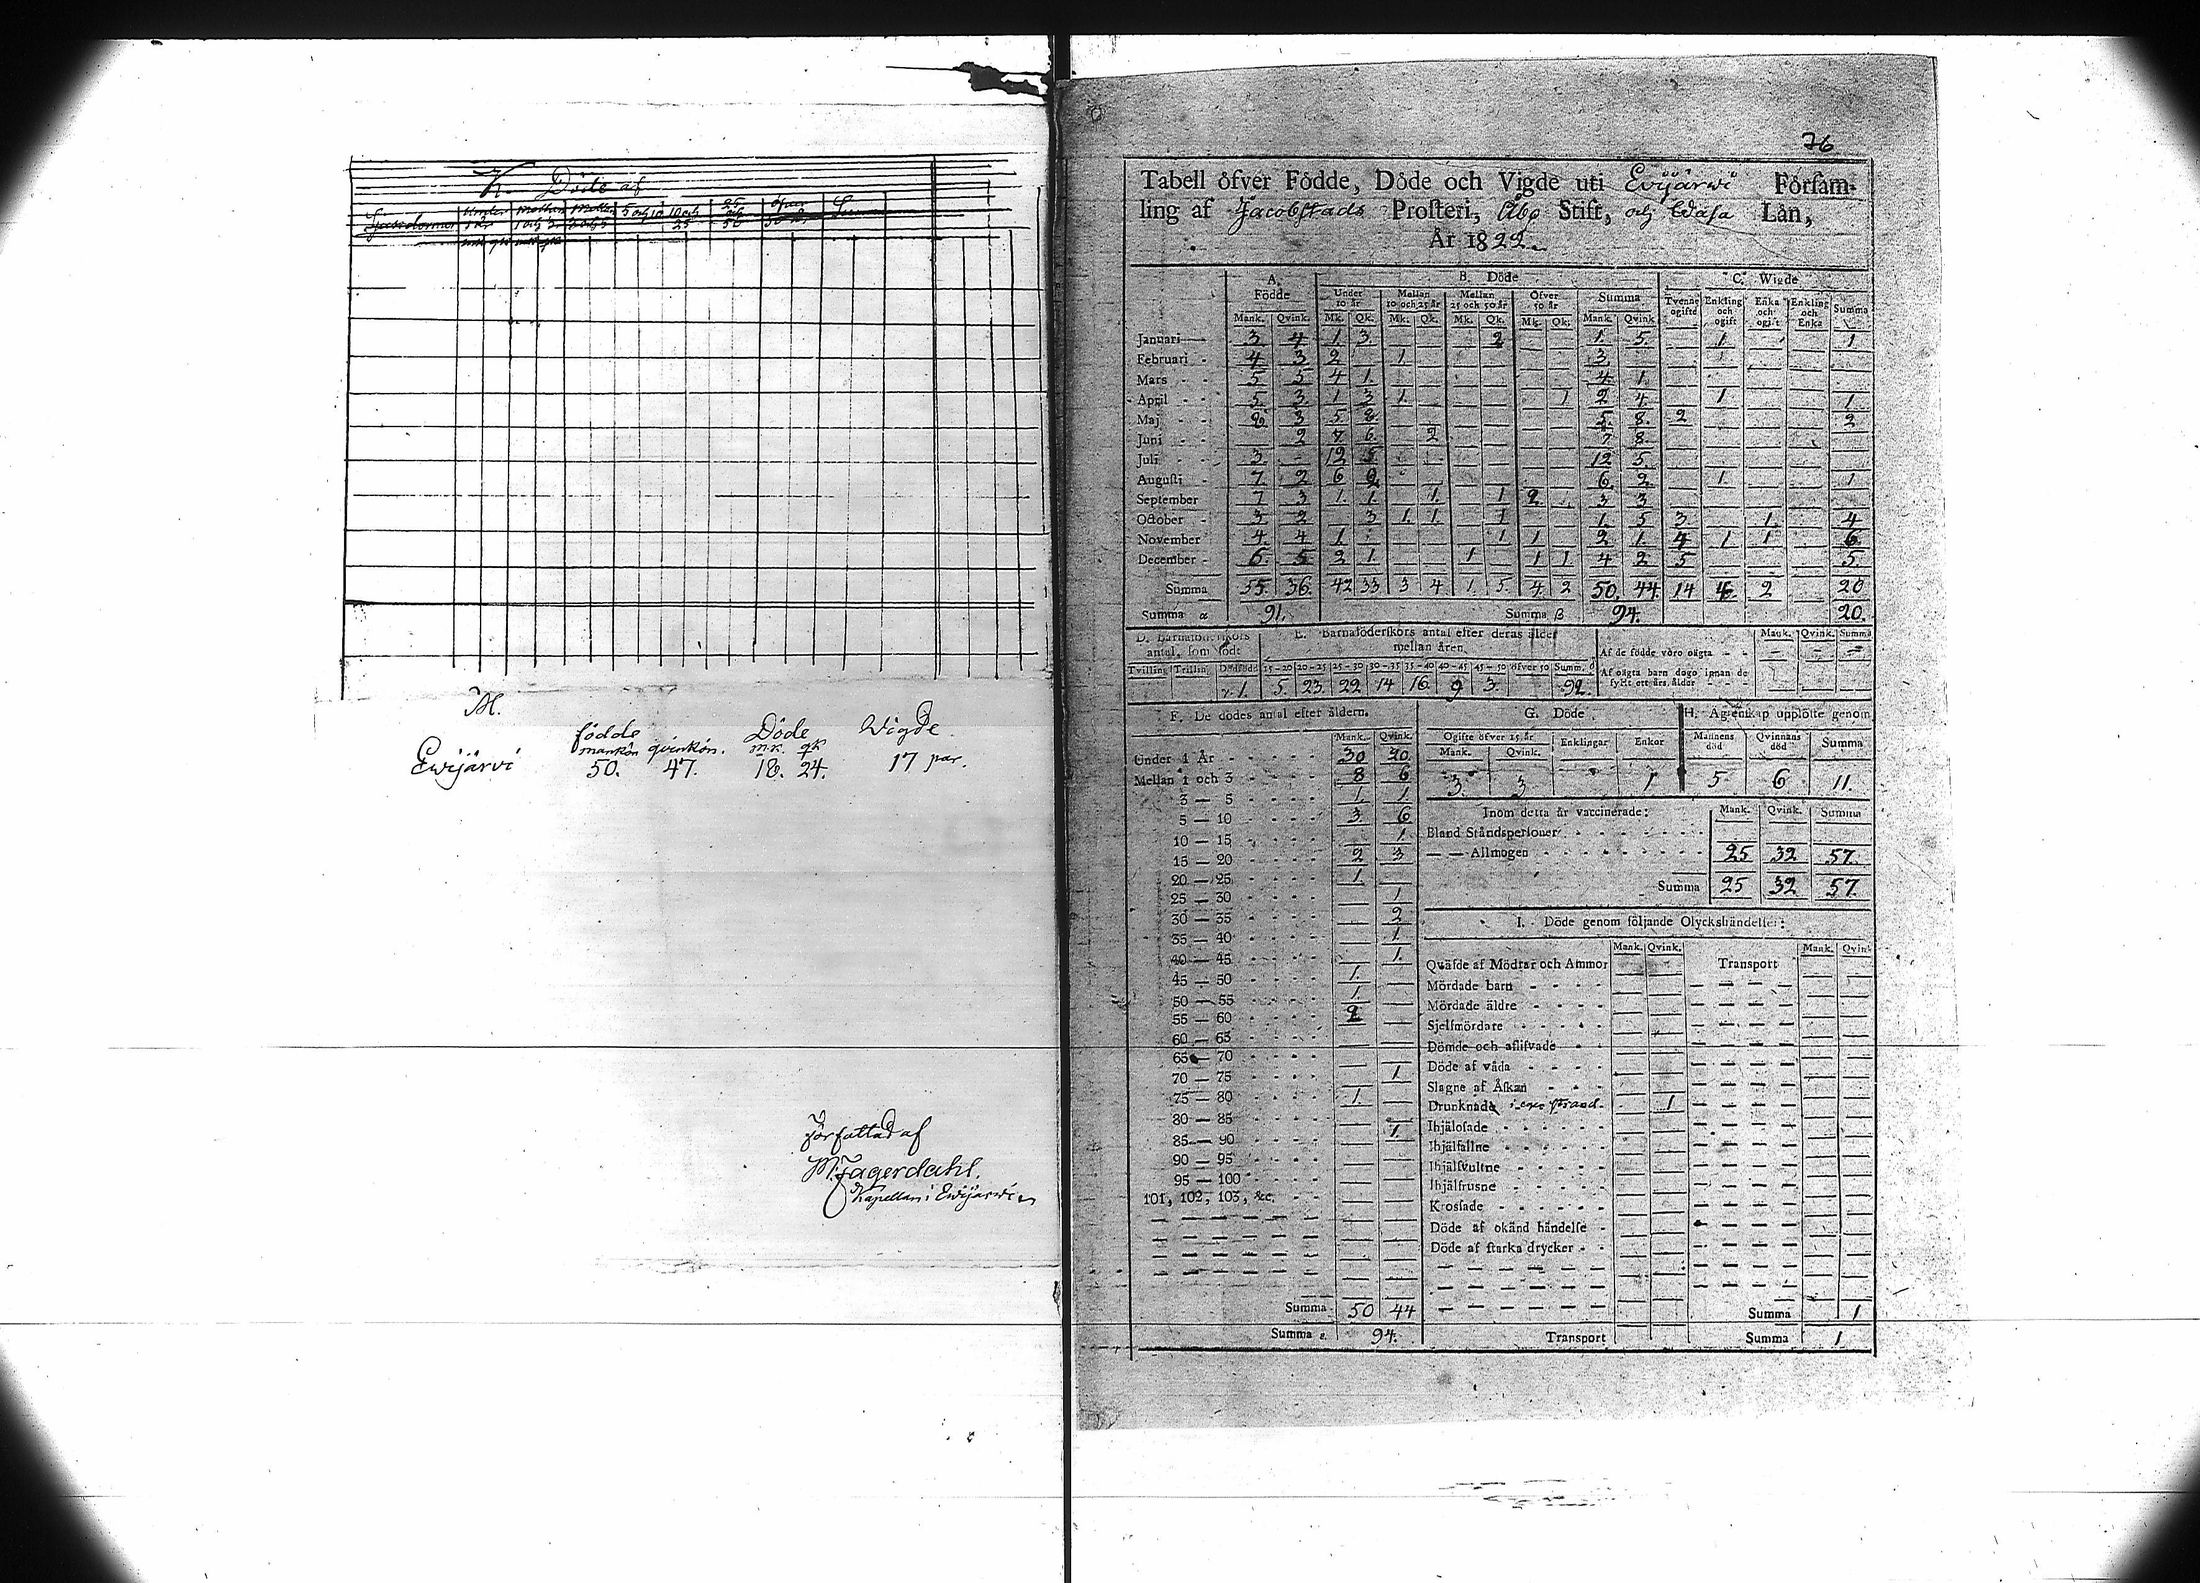 K. Döde af
Sjukdomar Under 1 år Mellan 1 och 3 Mellan 3 och 5 5 och 10 10 och 25 25 och 50 öfver 50 år Summa
mk qk mk qk
M.
födde Döde Wigde
mankön qvinkön. mk. qk
Ewijärvi 50. 47. 18. 24. 17 par.
författad af
M. Fagerdahl.
Kapellan i Ewijärwi
76
Tabell öfver Födde, Döde och Vigde uti Evijärwi Församling
ling af Jacobstads Prosteri, Åbo Stift, och Wasa Län,
År 1822.
A. Födde B. Döde C. Wigde
Under 10 år Mellan 10 och 25 år Mellan 25 och 50 år Öfver 50 år Summa Tvenne ogifte Enkling och ogift Enka och ogift Enkling och Enka Summa
Mank. Qvink. Mk. Qk. Mk. Qk. Mk. Qk. Mk. Qk. Mank. Qvink
Januari 3 4 1 3 2 1 5 1 1
Februari 4 3 2 1 3
Mars 5 5 4 1 4 1
April 5 3 1 3 1 1 2 4 1 1
Maj 8 3 5 8 5 8 2 2
Juni 2 7 6 2 7 8
Juli 3 - 12 5 12 5
Augusti 7 2 6 2 6 2 1 1
September 7 3 1 1 1 1 2 3 3
October 3 2 3 1 1 1 1 5 3 1 4
November 4 4 1 1 1 2 1 4 1 1 6
December 6 5 2 1 1 1 1 4 2 5 5
Summa 55 36 42 33 3 4 1 5 4 2 50 44 14 4 2 20
Summa α 91. Summa β 94. 20.
D. Barnaföderskors antal, som födt
E. Barnaföderskors antal efter deras ålder mellan åren
Mank. Qvink. Summa
Af de födde voro oägta - - -
Af oägta barn dogo innan de fyllt ett års ålder
Tvilling Trilling Dödfödd 15-20 20-25 25-30 30-35 35-40 40-45 45-50 öfver 50 Summ. δ
1. 5. 23. 22 14 16. 9 3. 92.
F. De dödes antal efter åldern.
Mank. Qvink.
Under 1 År 30 20
Mellan 1 och 3 8 6
3 — 5 1 1
5 — 10 3 6
10 — 15 1
15 — 20 2 3
20 — 25 1
25 — 30 1
30 — 35 2
35 — 40 1
40 — 45 1
45 — 50 1
50 — 55 1
55 — 60 2
60 — 65
65 — 70
70 — 75 1
75 — 80 1
80 — 85
85 — 90 1
90 — 95
95 — 100
101, 102, 103, &c.
Summa 50 44
Summa ε 94.
G. Döde
Ogifte öfver 15 år Enklingar Enkor
Mank. Qvink.
3 3 1
H. Ägtenskap upplöste genom
Mannens död Qvinnans död Summa
5 6 11.
Inom detta år vaccinerade: Mank. Qvink. Summa
Bland Ståndspersoner
— — Allmogen 25 32 57.
Summa 25 32 57.
I. Döde genom följande Olyckshändelser:
Mank. Qvink. Mank. Qvink
Qväfde af Mödrar och Ammor Transport
Mördade barn
Mördade äldre
Sjelfmördare
Dömde och aflifvade
Döde af våda
Slagne af Åskan
Drunknade 1
Ihjälosade
Ihjälfallne
Ihjälsvultne
Ihjälfrusne
Krossade
Döde af okänd händelse
Döde af starka drycker
Summa 1
Transport Summa 1